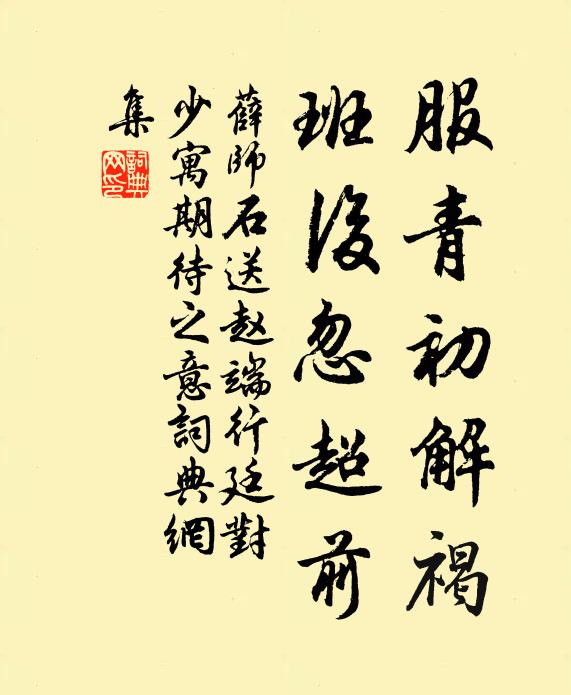 服青初解褐
班後忽超前
薛師石送赵端行廷對
少寓期待之意詞典網
集
詞典
网印